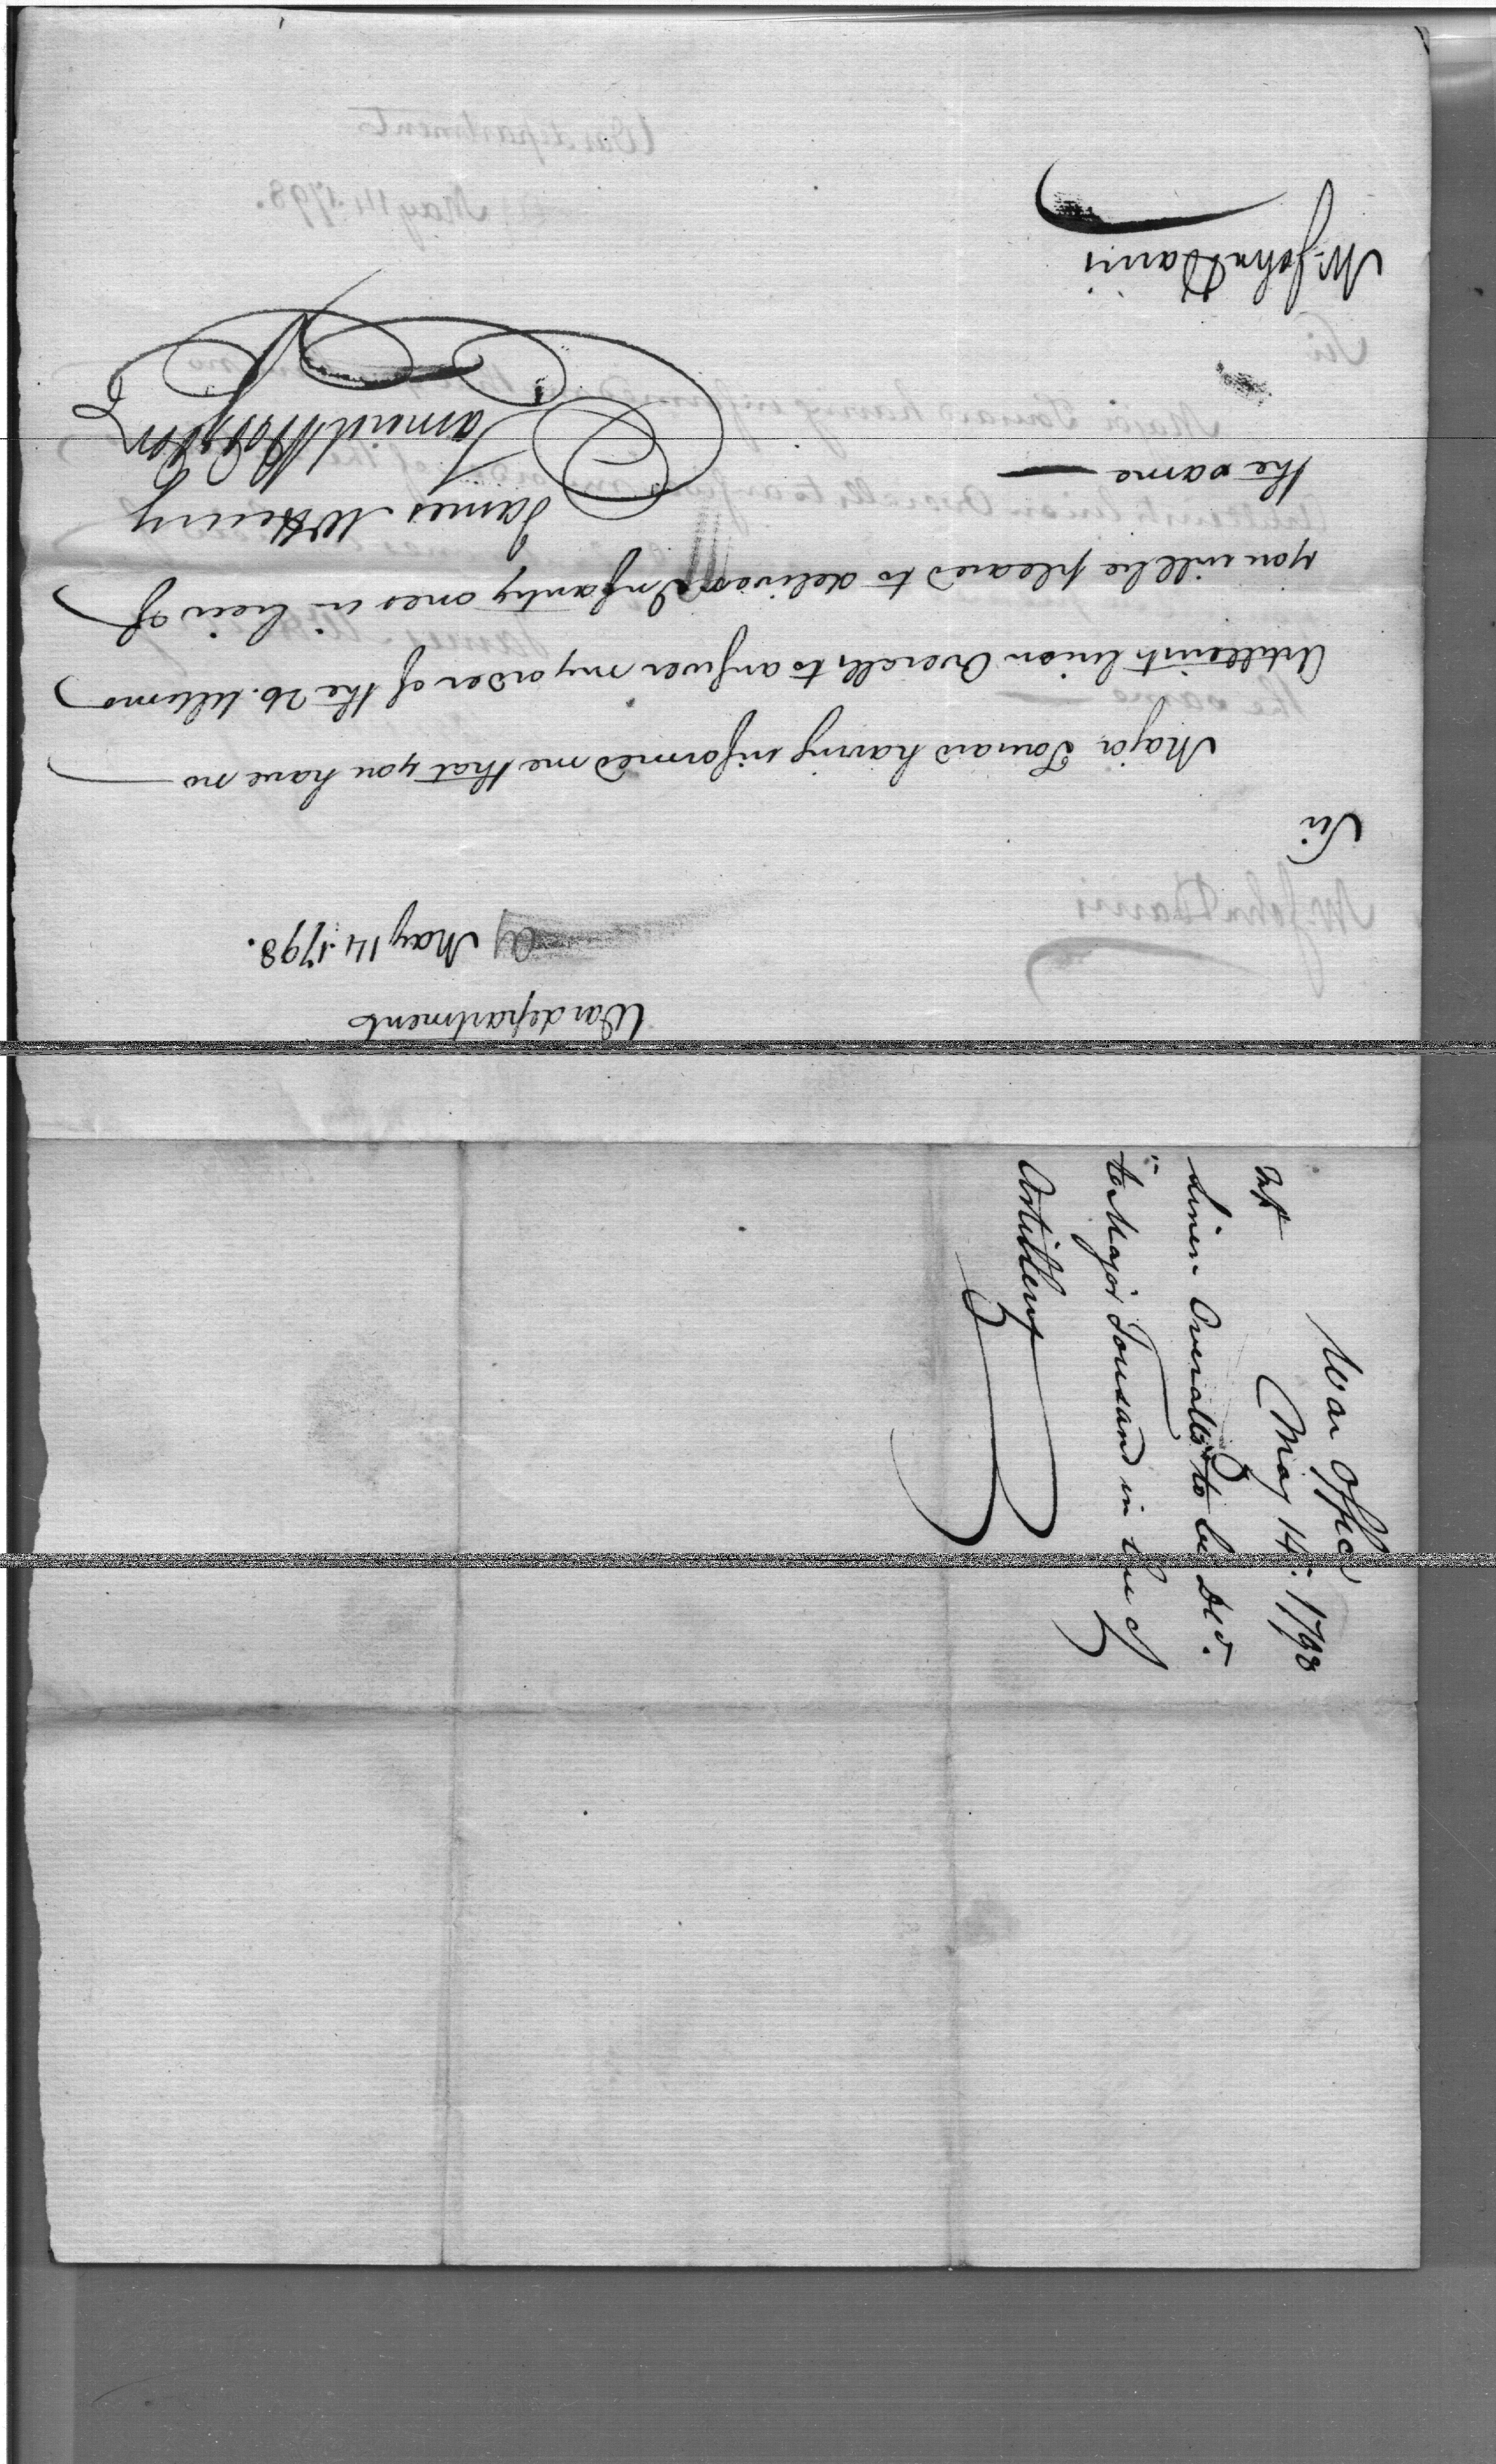 War department
May 14. 1798.
Sir
Major Tousard having informed me that you have no
Artillerists linen Overalls to answer my order of the 26. Ultimo
you will be pleased to deliver Infantry ones in lieu of
the same
James McHenry
Samuel Hodgdon
Mr. John Harris
War Office
May 14: 1798
Inf
Linen Overalls to be Deld.
to Major Tousard in lieu of
Artillery